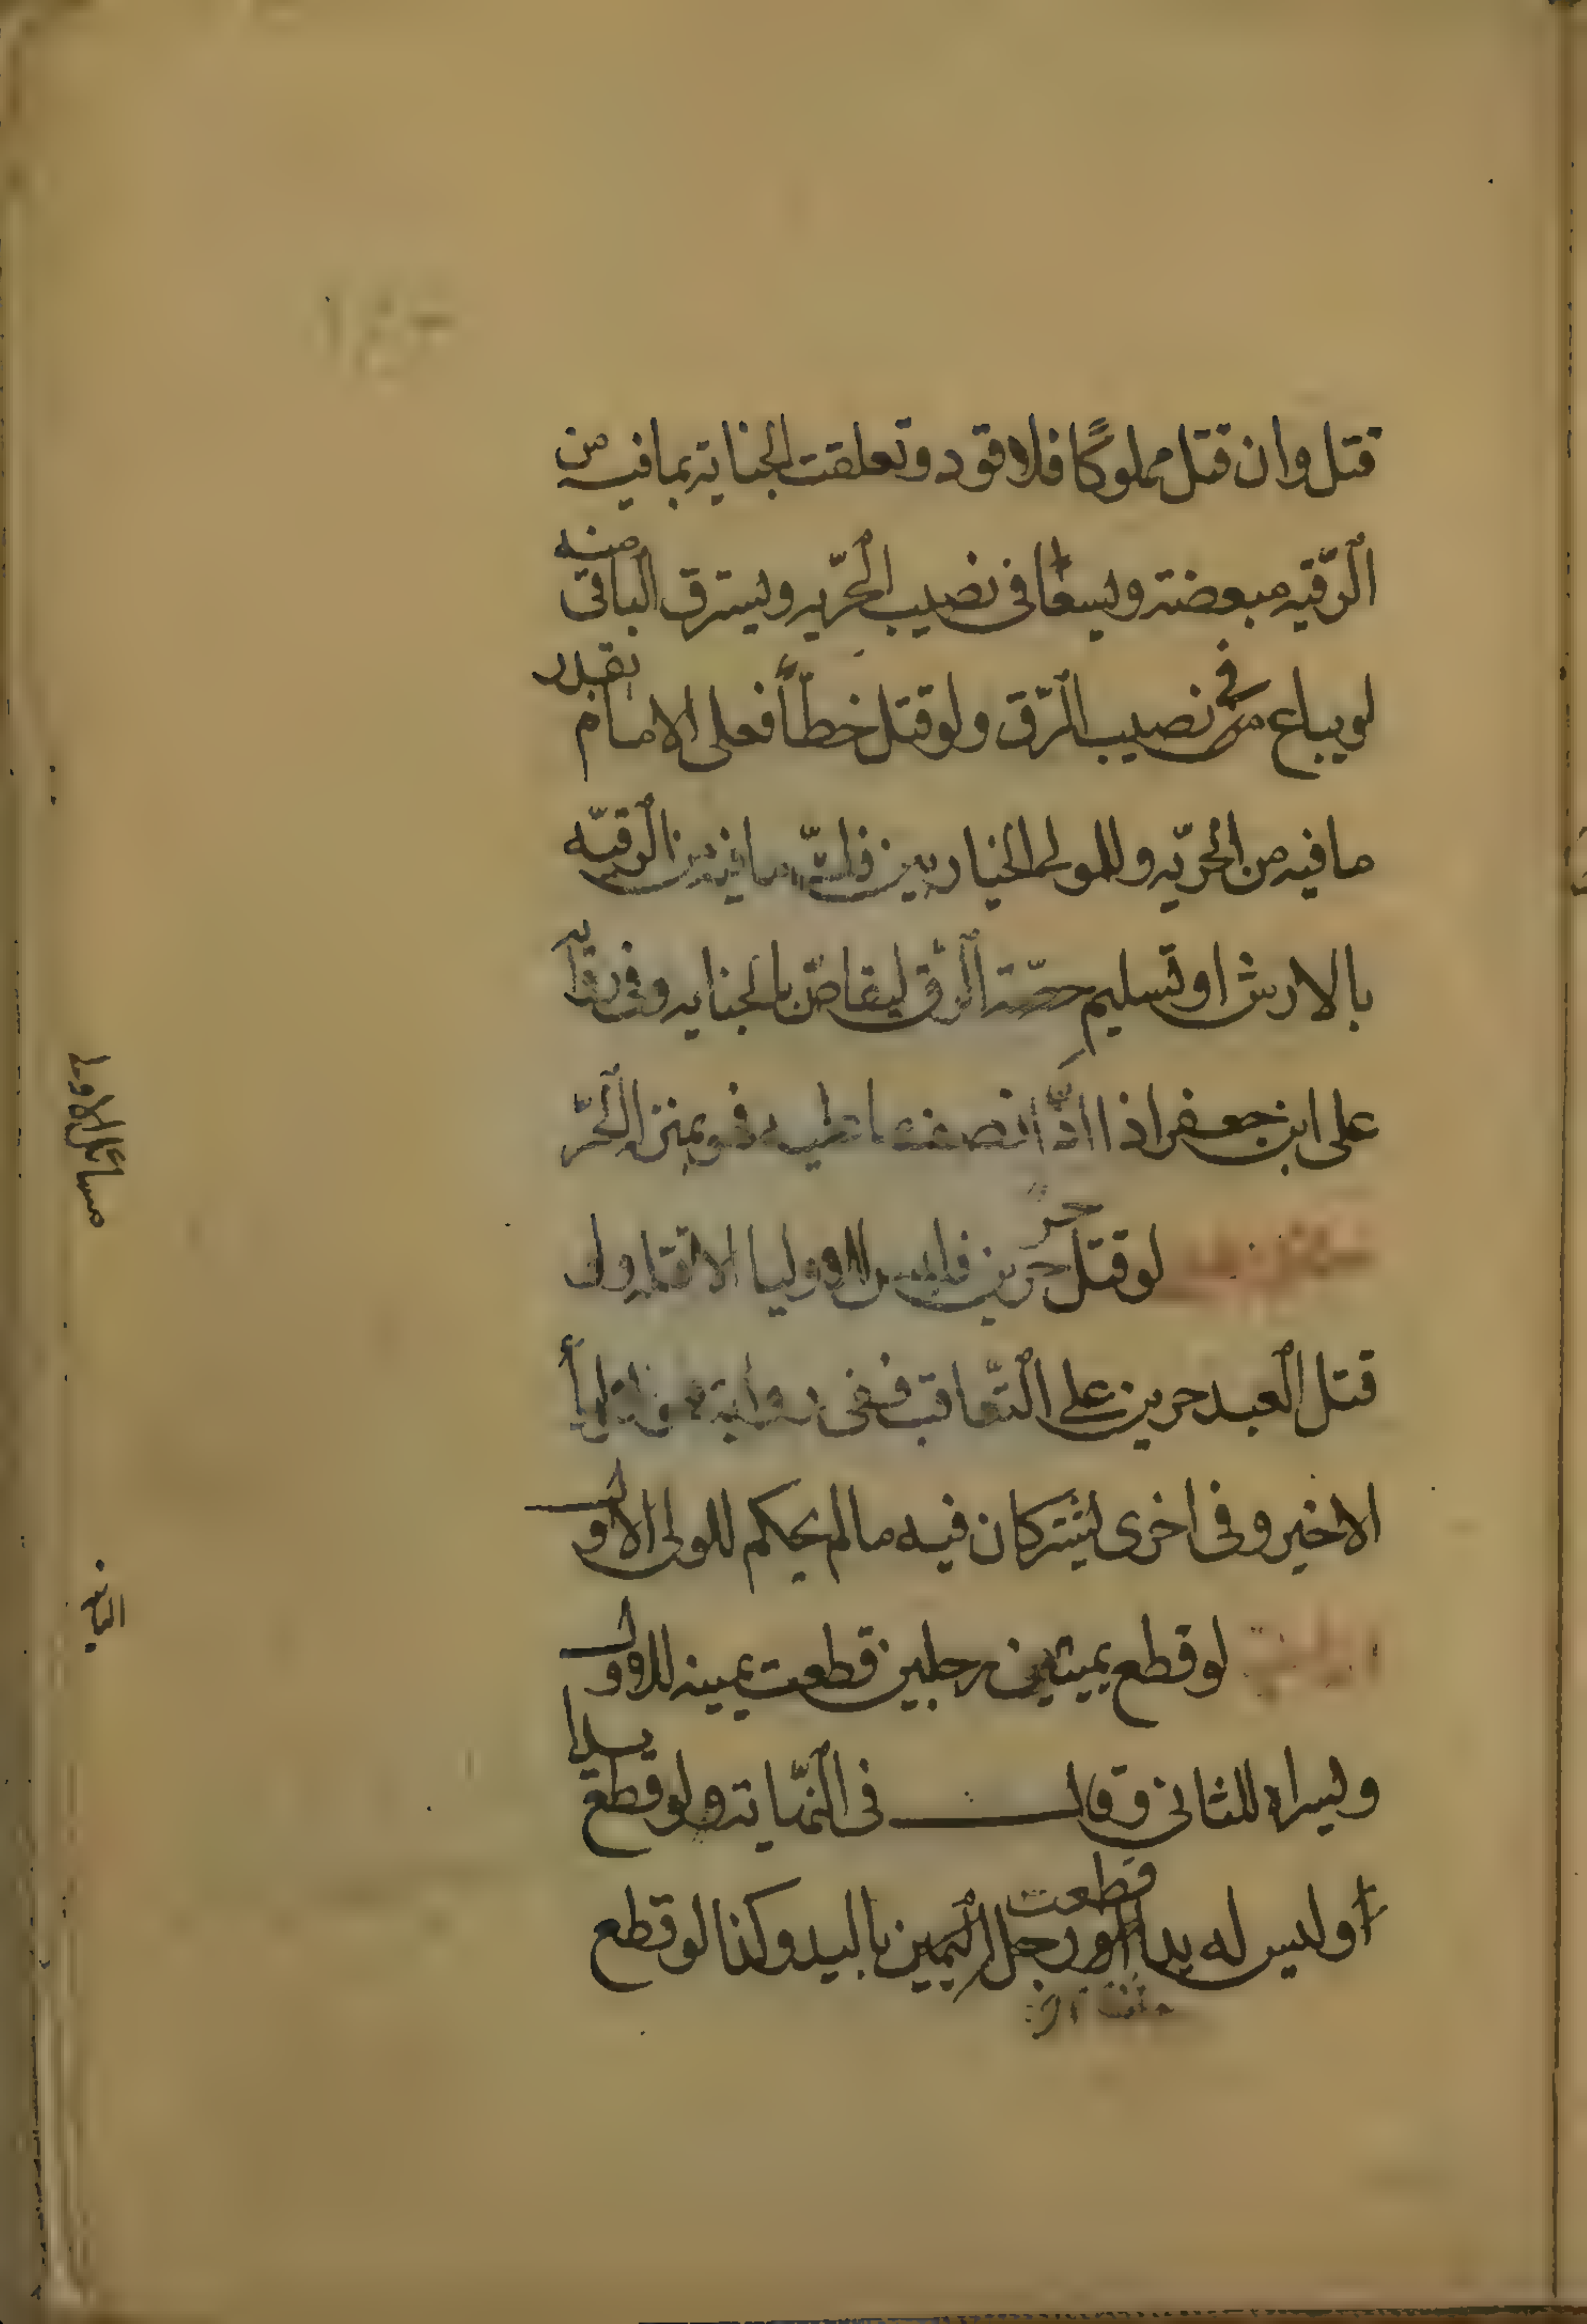 قتل وان قتل مملوكًا فلا قود وتعلقت الجناية بما فيه من
الرّقيه مبعضة ويسعا في نصيب الحرّيه ويسترق الباقى منه
لويباع في نصيب الرّق ولو قتل خطأً فعلى الامام بقدر
ما فيه من الحرّيه وللمولى الخيار بين فكّ ما فيه من الرقيّه
بالارش او تسليم حصّة الرّق ليقاصّ بالجنايه وفى رواية
على ابن جعفر اذا ادّا نصف ما عليه فهو بمنزلة الحرّ
لو قتل حرّ حرين فليس للاوليا الا قتله ولو
قتل العبد حرين على التّعاقب ففى رواية
الاخير وفى اخرى يشتركان فيه ما لم يحكم للولى الاول
لو قطع يمين رجلين قطعت يمينه للاول
ويسراه للثانى وقال فى النّهاية ولو قطع يدا
اوليس له يد قطعت رجل اليمين باليد وكذا لو قطع
مسائل الاولى
الثانية